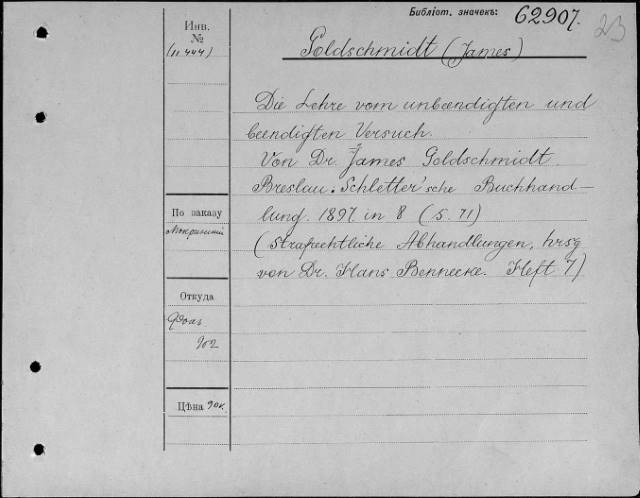 Библіот. значекъ: 62907.
23
Инв. №
(11444)
Goldschmidt (James)
Die Lehre vom unbeendigten und
beendigten Versuch.
Von Dr. James Goldschmidt.
Breslau. Schletter'sche Buchhand-
lung. 1897. in 8 (S. 71)
(Strafrechtliche Abhandlungen, hrsg
von Dr. Hans Bennecke. Heft 7)
По заказу
Откуда
902
Цѣна 90к.